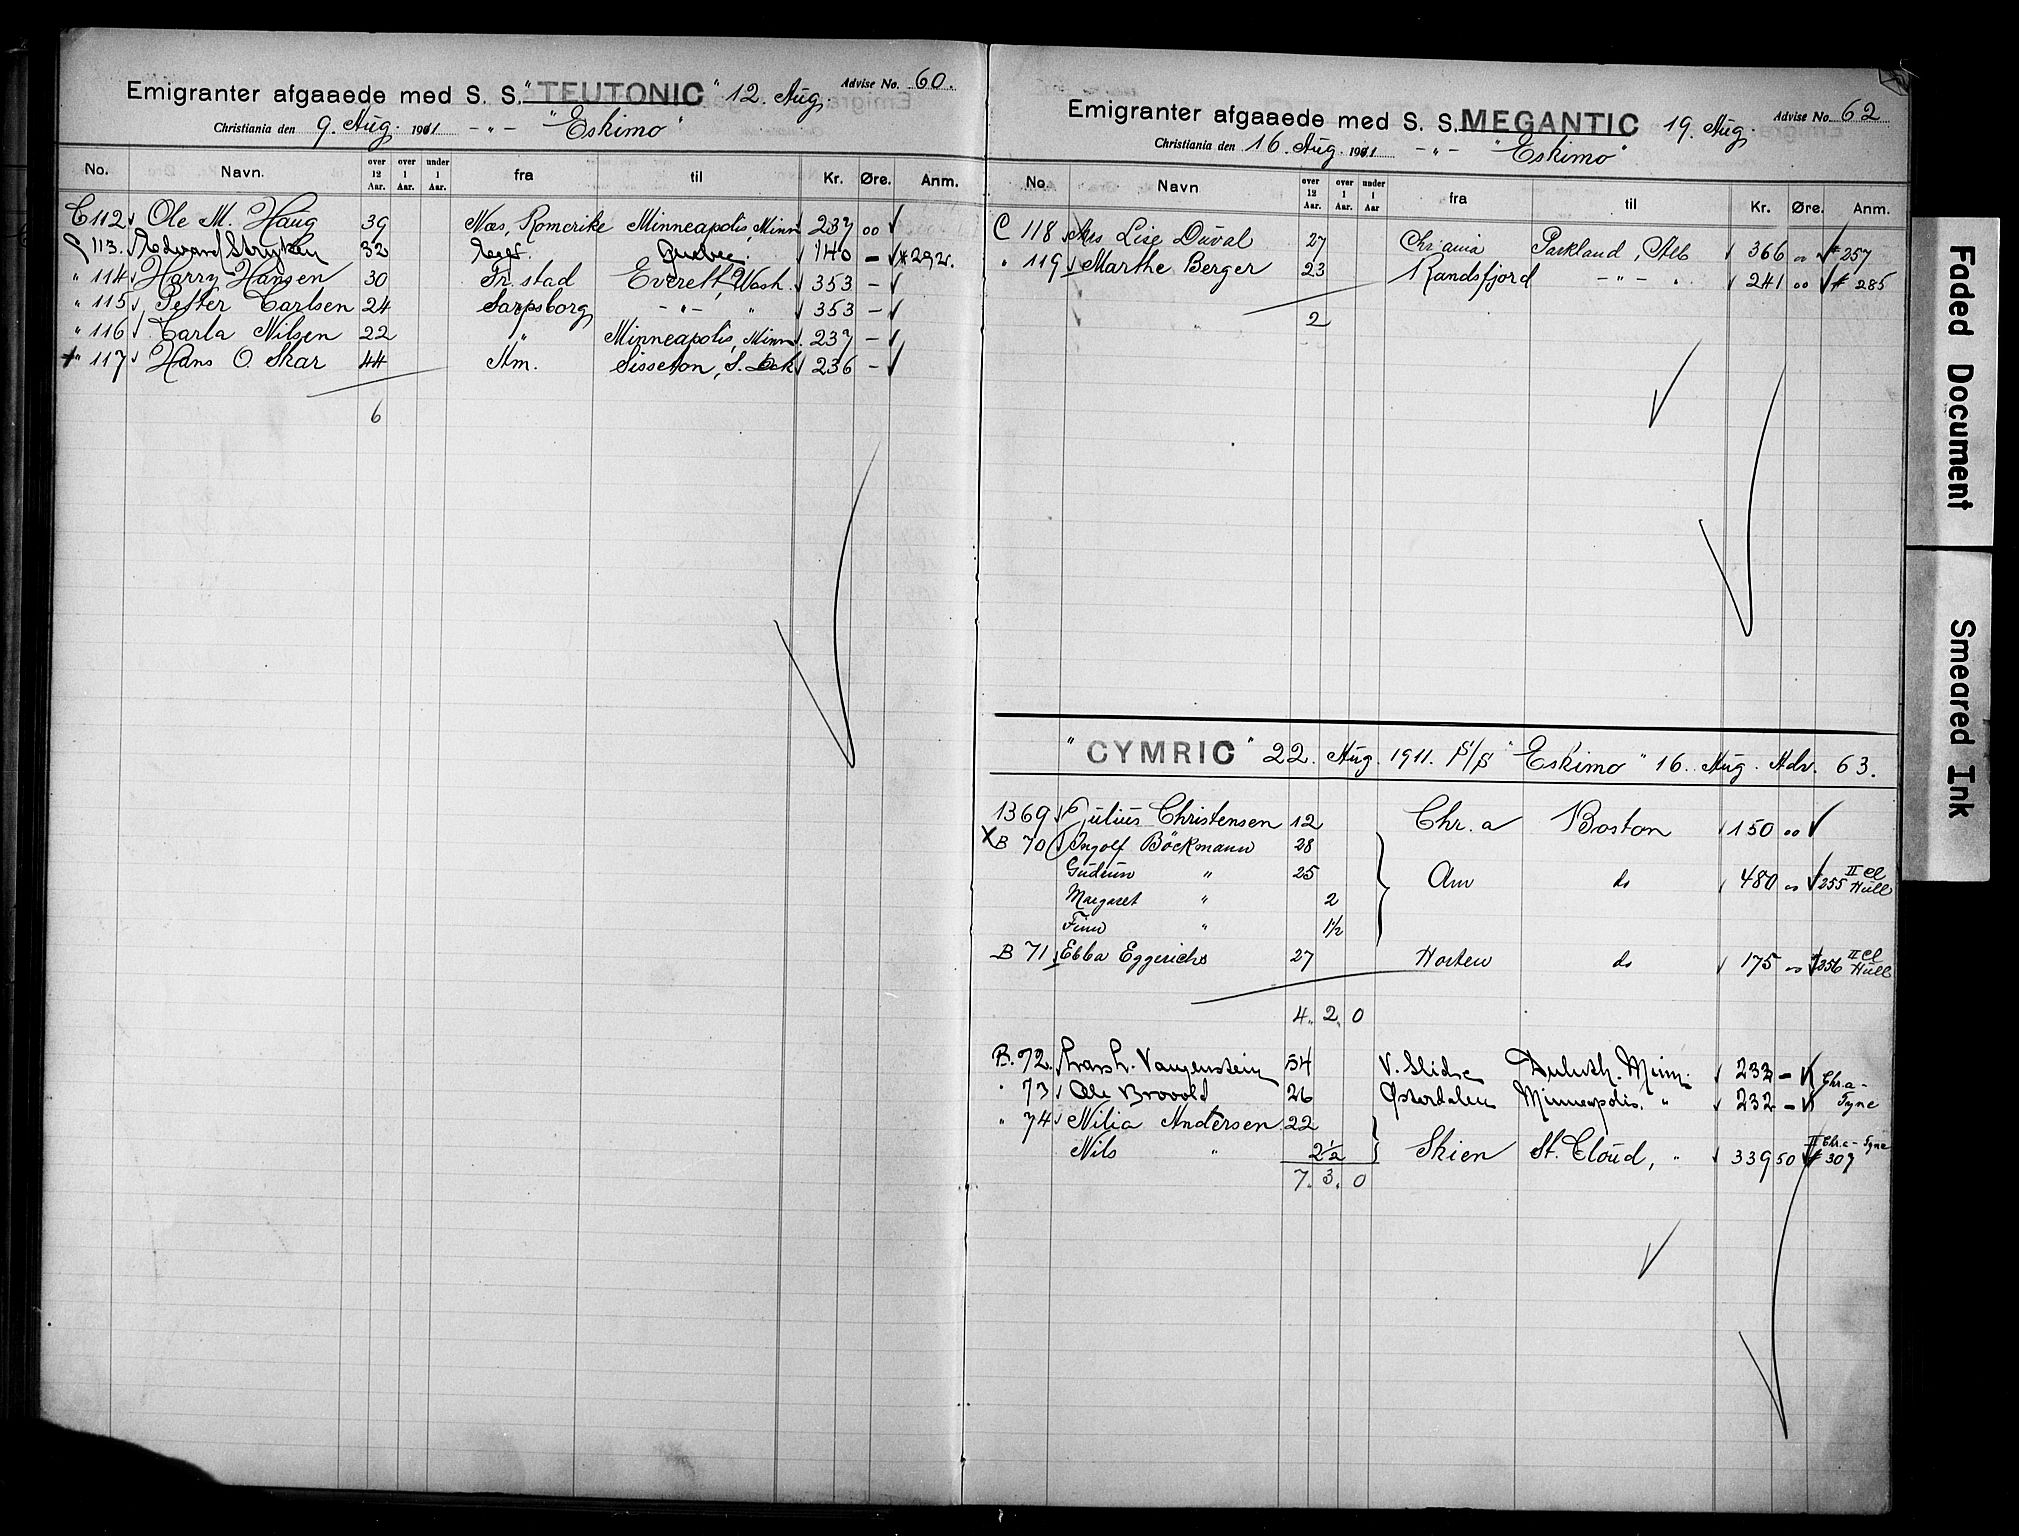 Emigranter afgaaede med S. S. "TEUTONIC" 12. Aug. Advise No. 60.
Christiania den 9. Aug. 1911 - " - "Eskimo"
No. Navn. over 12 Aar. over 1 Aar. under 1 Aar. fra til Kr. Øre. Anm.
C 112 Ole M. Haug 39 Næs, Romerike Minneapolis, Minn 237 00
113. Edvard 32 Quebec. 140 - # 292.
" 114 Harry Hansen 30 Fr.stad Everett, Wash. 353 -
" 115 Petter Carlsen 24 Sarpsborg - " - " 353 -
" 116 Carla Nilsen 22 " Minneapolis, Minn. 237 -
" 117 Hans O. Skar 44 Am. Sisseton, S. Dak 236 -
6
Emigranter afgaaede med S. S. MEGANTIC 19. Aug. Advise No. 62
Christiania den 16. Aug. 1911 - " - "Eskimo"
No. Navn over 12 Aar. over 1 Aar. under 1 Aar fra til Kr. Øre. Anm.
C 118 Mrs Lise Duval 27 Chr.ania Parkland, Alb 366 00 # 257
" 119 Marthe Berger 23 Randsfjord - " - " 241 00 # 285
2
"CYMRIC" 22. Aug. 1911. S/S "Eskimo" 16. Aug. Adv. 63.
1369 Julius Christensen 12 Chr.a Boston 150 00
X B 70 Ingolf Böckmann 28
Gudrun " 25 Am do 480 00 255 II Cl Hull
Margaret " 2
Finn " 1 1/2
B 71 Ebba Eggerichs 27 Horten do 175 00 256 II Cl Hull
4. 2. 0
B. 72 Vangenstein 54 V. Slidre Duluth. Minn. 232 - Chr.a -
" 73 Ole Brovold 26 Østerdalen Minneapolis. " 232 - Tyne
" 74 Milia Andersen 22
Nils " 2 1/2 Skien St. Cloud, " 339 50 II Chr.a - Tyne # 307
7. 3. 0
Faded Document
Smeared Ink